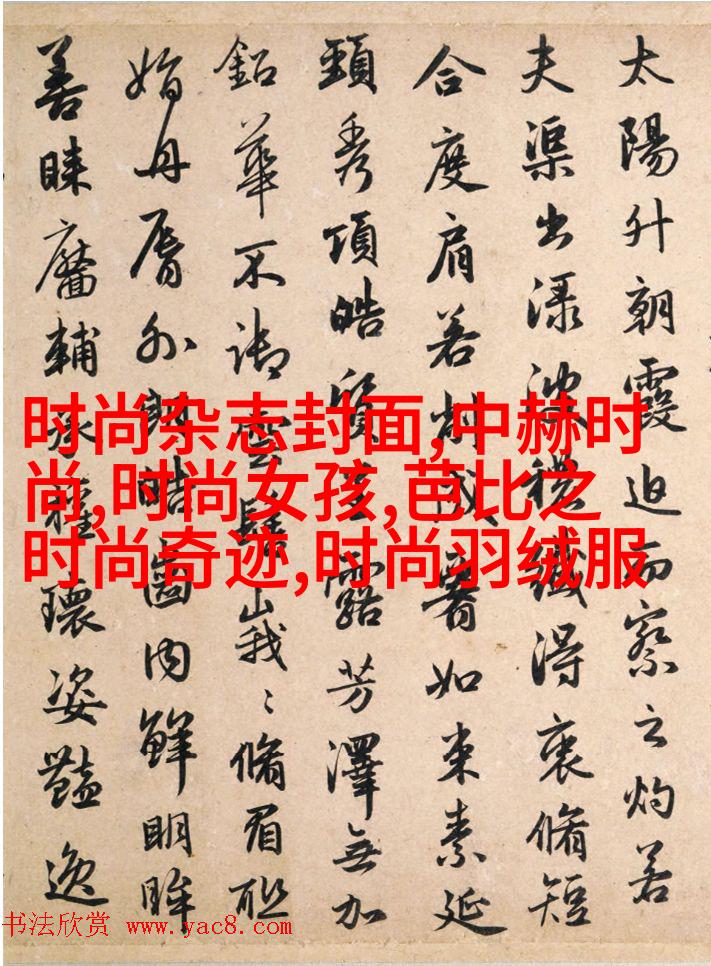 太陽升朝霞迫而察之灼若
夫渠出渌波穠纖得衷脩短
合度肩若削成署如束素延
頸秀項皓質呈露芳澤無加
鉛華不御雲髻峩〻脩眉聯
娟丹脣外朗皓齒内鮮明眸
善睞靨輔承權環姿豔逸
时尚杂志封面,中赫时
尚,时尚女孩,芭比之
时尚奇迹,时尚羽绒服
书法欣赏 www.yac8.com